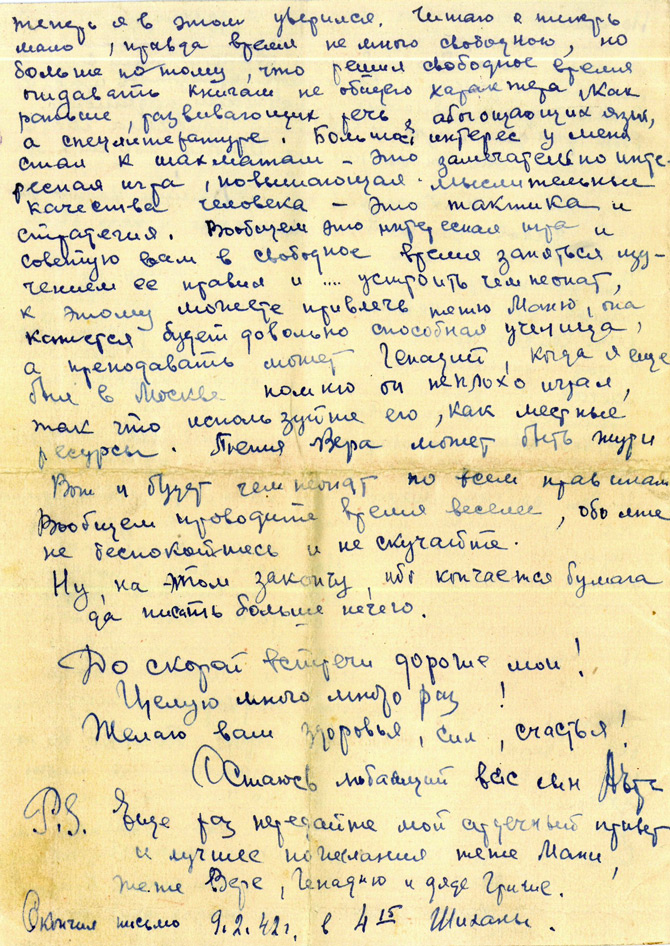 теперь я в этом уверился. Читаю я теперь
мало, правда время не много свободною, но
больше потому, что решил свободное время
отдавать книгам не общего характера, как
раньше, развивающих речь, обогощающих язык,
а спецлитературе. Большой интерес у меня
стал к шахматам – это замечательно инте-
ресная игра, повышающая мыслительные
качества человека – это тактика и
стратегия. Вообщем это интересная игра и
советую вам в свободное время заняться изу-
чением ее правил и .... устроить чемпеонат,
к этому можете привлечь тетю Маню, она
кажется будет довольно способная ученица,
а преподавать может Генадий, когда я еще
был в Москве помню он неплохо играл,
так что используйте его, как местные
ресурсы. Тетя Вера может быть жури
Вот и будет чемпеонат по всем правилам
Вообщем проводите время веселее, обо мне
не беспокойтесь и не скучайте.
Ну, на этом закончу, ибо кончается бумага
да писать больше нечего.
До скорой встречи дорогие мои!
Целую много много раз!
Желаю вам здоровья, сил, счастья!
Остаюсь любящий вас сын
P.S. Еще раз передайте мой сердечный привет
и лучшие пожелания тете Мани,
тете Вере, Генадию и дяде Грише.
Окончил письмо 9.2.42г. в 4 15 Шиханы.